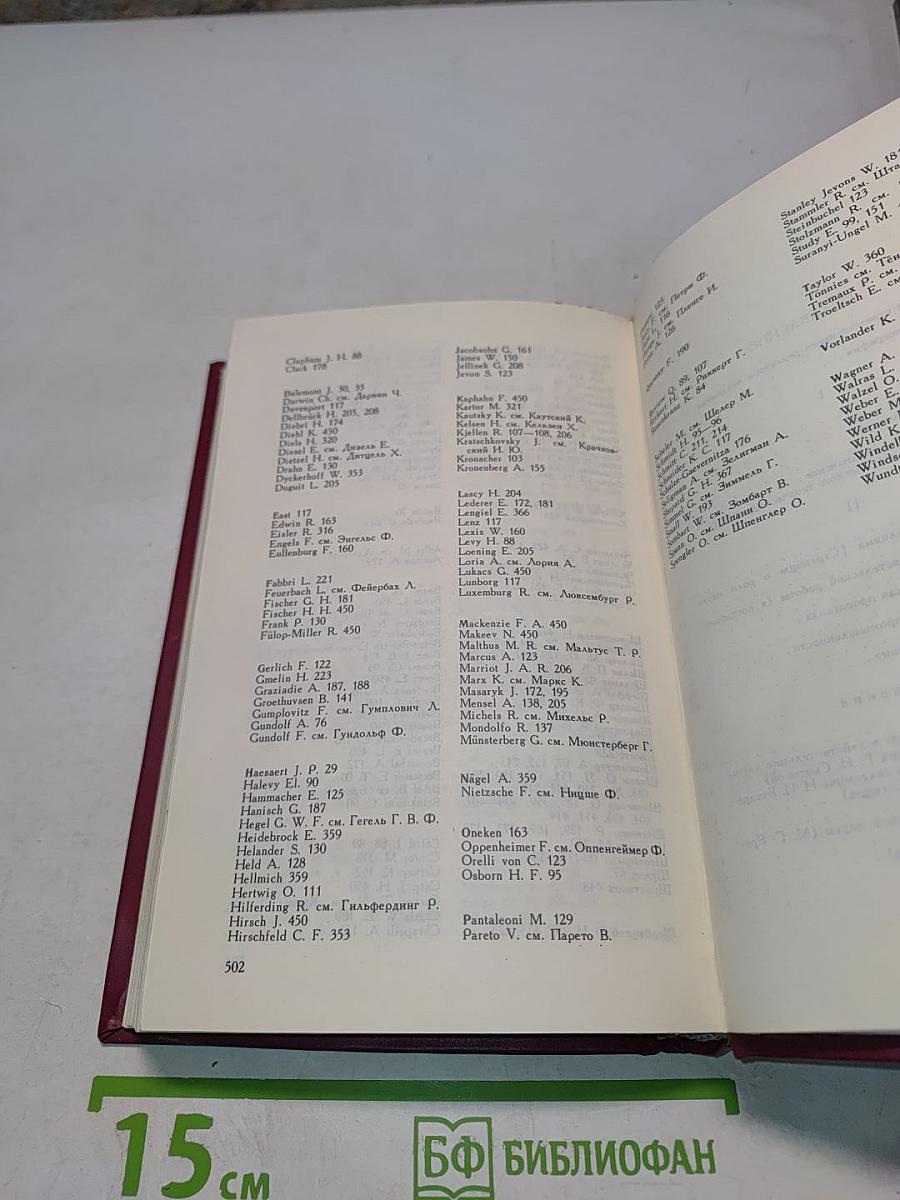 Clapham J. H. 88
Clark 178
Dalemont J. 30, 35
Darwin Ch. см. Дарвин Ч.
Davenport 117
Dellbrück H. 205, 208
Diebri H. 174
Diehl K. 450
Diels H. 320
Diesel E. см. Дизель Е.
Dietzel H. см. Дитцель Х.
Drahn E. 130
Dyckerhoff W. 353
Duguit L. 205
East 117
Edwin R. 163
Eisler R. 316
Engels F. см. Энгельс Ф.
Eullenburg F. 160
Fabbri L. 221
Feuerbach L. см. Фейербах Л.
Fischer G. H. 181
Fischer H. H. 450
Frank P. 130
Fülop-Miller R. 450
Gerlich F. 122
Gmelin H. 223
Graziadie A. 187, 188
Groethuvsen B. 141
Gumplovitz F. см. Гумплович Л.
Gundolf A. 76
Gundolf F. см. Гундольф Ф.
Haesaert J. P. 29
Halevy El. 90
Hammacher E. 125
Hanisch G. 187
Hegel G. W. F. см. Гегель Г. В. Ф.
Heidebrock E. 359
Helander S. 130
Held A. 128
Hellmich 359
Hertwig O. 111
Hilferding R. см. Гильфердинг Р.
Hirsch J. 450
Hirschfeld C. F. 353
502
Jacobsohn G. 161
James W. 150
Jellinek G. 208
Jevon S. 123
Kaphahn F. 450
Kartor M. 321
Kautsky K. см. Каутский К.
Kelsen H. см. Кельзен Х.
Kjellen R. 107—108, 206
Kratschkovsky J. см. Крачков-
ский И. Ю.
Kronacher 103
Kronenberg A. 155
Lascy H. 204
Lederer E. 172, 181
Lengiel E. 366
Lenz 117
Lexis W. 160
Levy H. 88
Loening E. 205
Loria A. см. Лория А.
Lukacs G. 450
Lunborg 117
Luxemburg R. см. Люксембург Р.
Mackenzie F. A. 450
Makeev N. 450
Malthus M. R. см. Мальтус Т. Р.
Marcus A. 123
Marriot J. A. R. 206
Marx K. см. Маркс К.
Masaryk J. 172, 195
Mensel A. 138, 205
Michels R. см. Михельс Р.
Mondolfo R. 137
Münsterberg G. см. Мюнстерберг Г.
Nägel A. 359
Nietzsche F. см. Ницше Ф.
Oneken 163
Oppenheimer F. см. Оппенгеймер Ф.
Orelli von C. 123
Osborn H. F. 95
Pantaleoni M. 129
Pareto V. см. Парето В.
125
F. см. Петри Ф.
116
см. Пленге И.
A. 126
F. 190
O. 89, 107
H. см. Риккерт Г.
K. 84
M. см. Шелер М.
H. 95—96
C. 211, 214
Schneider K. C. 117
Schulze-Gaevernitza 176
Seligman A. см. Зелигман А.
Shepard G. H. 367
Simmel G. см. Зиммель Г.
Small W. 193
Sombart W. см. Зомбарт В.
Spann O. см. Шпанн О.
Spengler O. см. Шпенглер О.
Stanley Jevons W. 181
Stammler R. см. Шта
Steinbuchel 123
Stolzmann R. см.
Study E. 99, 151
Suranyi-Ungel M.
Taylor W. 360
Tönnies см. Тён
Tremaux P. см.
Troeltsch E. см
Vorlander K.
Wagner A.
Walras L.
Walzel O.
Weber E.
Weber M
Werner
Wild K
Windel
Winds
Wund
15 см
БФ БИБЛИОФАН